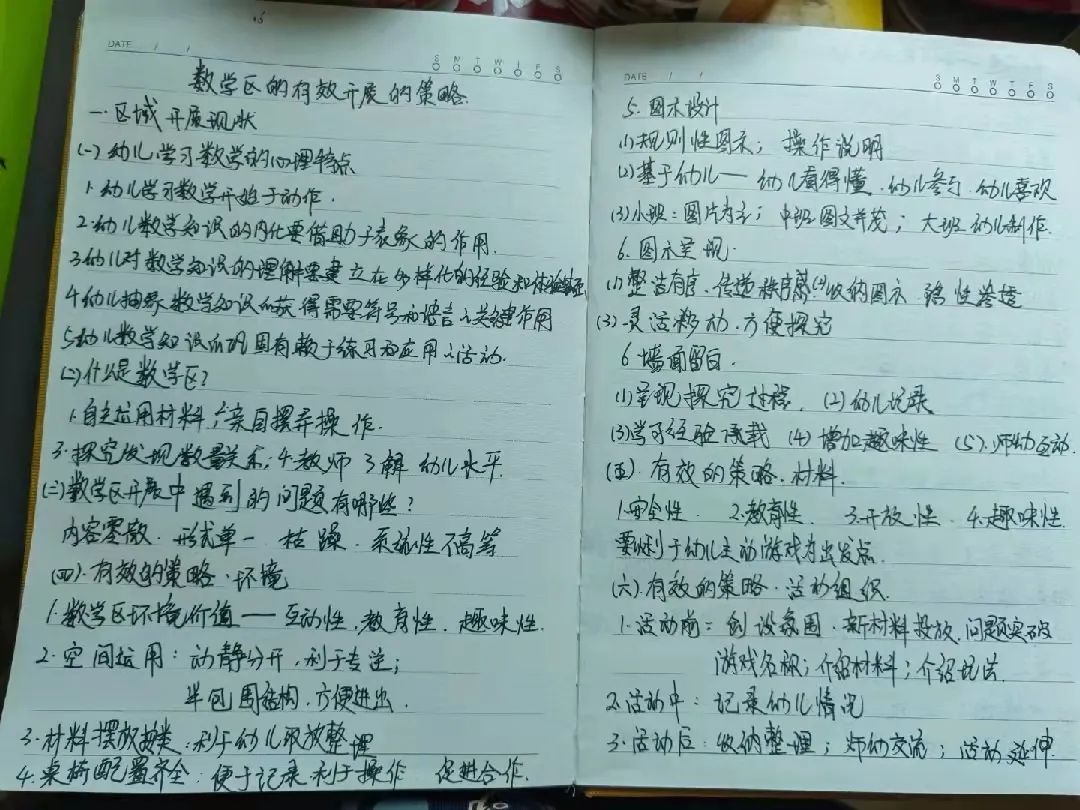 DATE / /
S M T W T F S
数学区的有效开展的策略.
一.区域开展现状
(一)幼儿学习数学的心理特点
1.幼儿学习数学开始于动作.
2.幼儿数学知识的内化要借助于表象的作用.
3.幼儿对数学知识的理解要建立在多样化的经验和体验
4.幼儿抽象数学知识的获得需要符号和语言之关键作用
5.幼儿数学知识的巩固有赖于练习和应用之活动.
(二)什么是数学区?
1.自主运用材料;2.亲自摆弄操作.
3.探究发现数量关系;4.教师了解幼儿水平.
(三)数学区开展中遇到的问题有哪些?
内容零散.形式单一 枯躁.系统性不高等
(四).有效的策略.环境
1.数学区环境价值——互动性,教育性.趣味性.
2.空间运用:动静分开,利于专注;
半包围结构.方便进出.
3.材料摆放按类:利于幼儿取放整理
4.桌椅配置齐全:便于记录.利于操作 促进合作.
DATE / /
S M T W T F S
5.图示设计
(1)规则性图示;操作说明
(2)基于幼儿——幼儿看得懂.幼儿参与.幼儿喜欢
(3)小班:图片为主;中班图文并茂;大班幼儿制作.
6.图示呈现.
(1)整洁有序.传递秩序感(2)收纳图示
(3).灵活移动.方便探究
6 墙面留白.
(1)呈现探究过程.(2)幼儿记录
(3)学习经验承载 (4)增加趣味性 (5).师幼互动.
(五).有效的策略.材料.
1.安全性. 2.教育性. 3.开放性. 4.趣味性.
要以利于幼儿主动游戏为出发点.
(六).有效的策略.活动组织.
1.活动前:创设氛围.新材料投放.问题突破
游戏名称;介绍材料;介绍玩法.
2.活动中:记录幼儿情况
3.活动后:收纳整理;师幼交流;活动延伸.